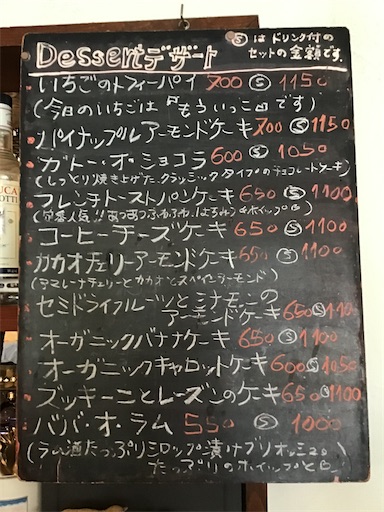 Dessert デザート
Ⓢは ドリンク付の
セットの金額です。
いちごのトフィーパイ 700 Ⓢ 1150
(今日のいちごは"もういっこ"です)
パイナップルアーモンドケーキ 700 Ⓢ 1150
ガトー・オ・ショコラ 600 Ⓢ 1050
(しっとり焼き上げた クラッシックタイプのチョコレートケーキ)
フレンチトーストパンケーキ 650 Ⓢ 1100
コーヒーチーズケーキ 650 Ⓢ 1100
カカオチェリーアーモンドケーキ 650 Ⓢ 1100
(アマレーナチェリーとカカオとスペインアーモンド)
セミドライフルーツとシナモンの
アーモンドケーキ 650 Ⓢ 1100
オーガニックバナナケーキ 650 Ⓢ 1100
オーガニックキャロットケーキ 600 Ⓢ 1050
ズッキーニとレーズンのケーキ 650 Ⓢ 1100
ババ・オ・ラム 550 Ⓢ 1000
(ラム酒たっぷりシロップ漬けブリオッシュ。
たっぷりのホイップと